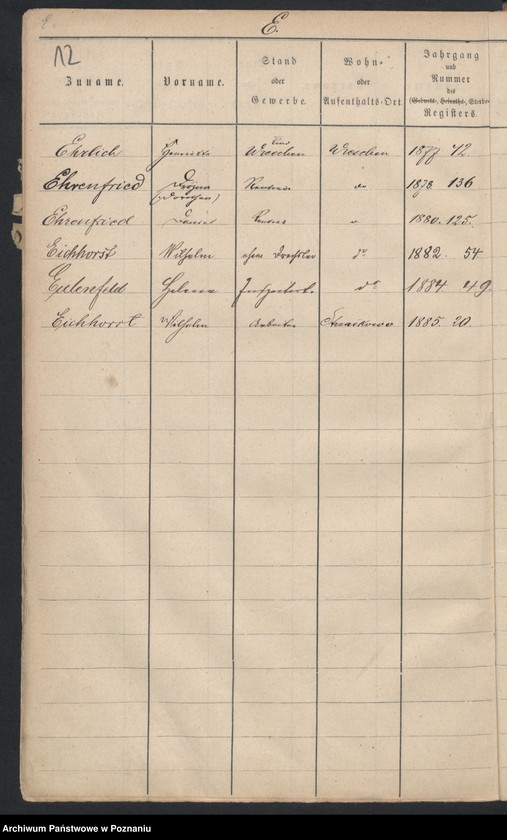 E.
12
Zuname.
Vorname.
Stand
oder
Gewerbe.
Wohn-
oder
Aufenthalts-Ort.
Jahrgang
und
Nummer
des
(Geburts-, Heiraths-, Sterbe-
Registers.
Ehrlich Henriette Wreschen 1877 42
Ehrenfried 1878. 136
(Dorchen)
Ehrenfried Daniel Rentier 1880. 125.
Eichhorst Wilhelm Drechsler do 1882. 54
Eulenfeld Helene do 1884 49
Eichhorst Wilhelm Arbeiter 1885. 20.
Archiwum Państwowe w Poznaniu